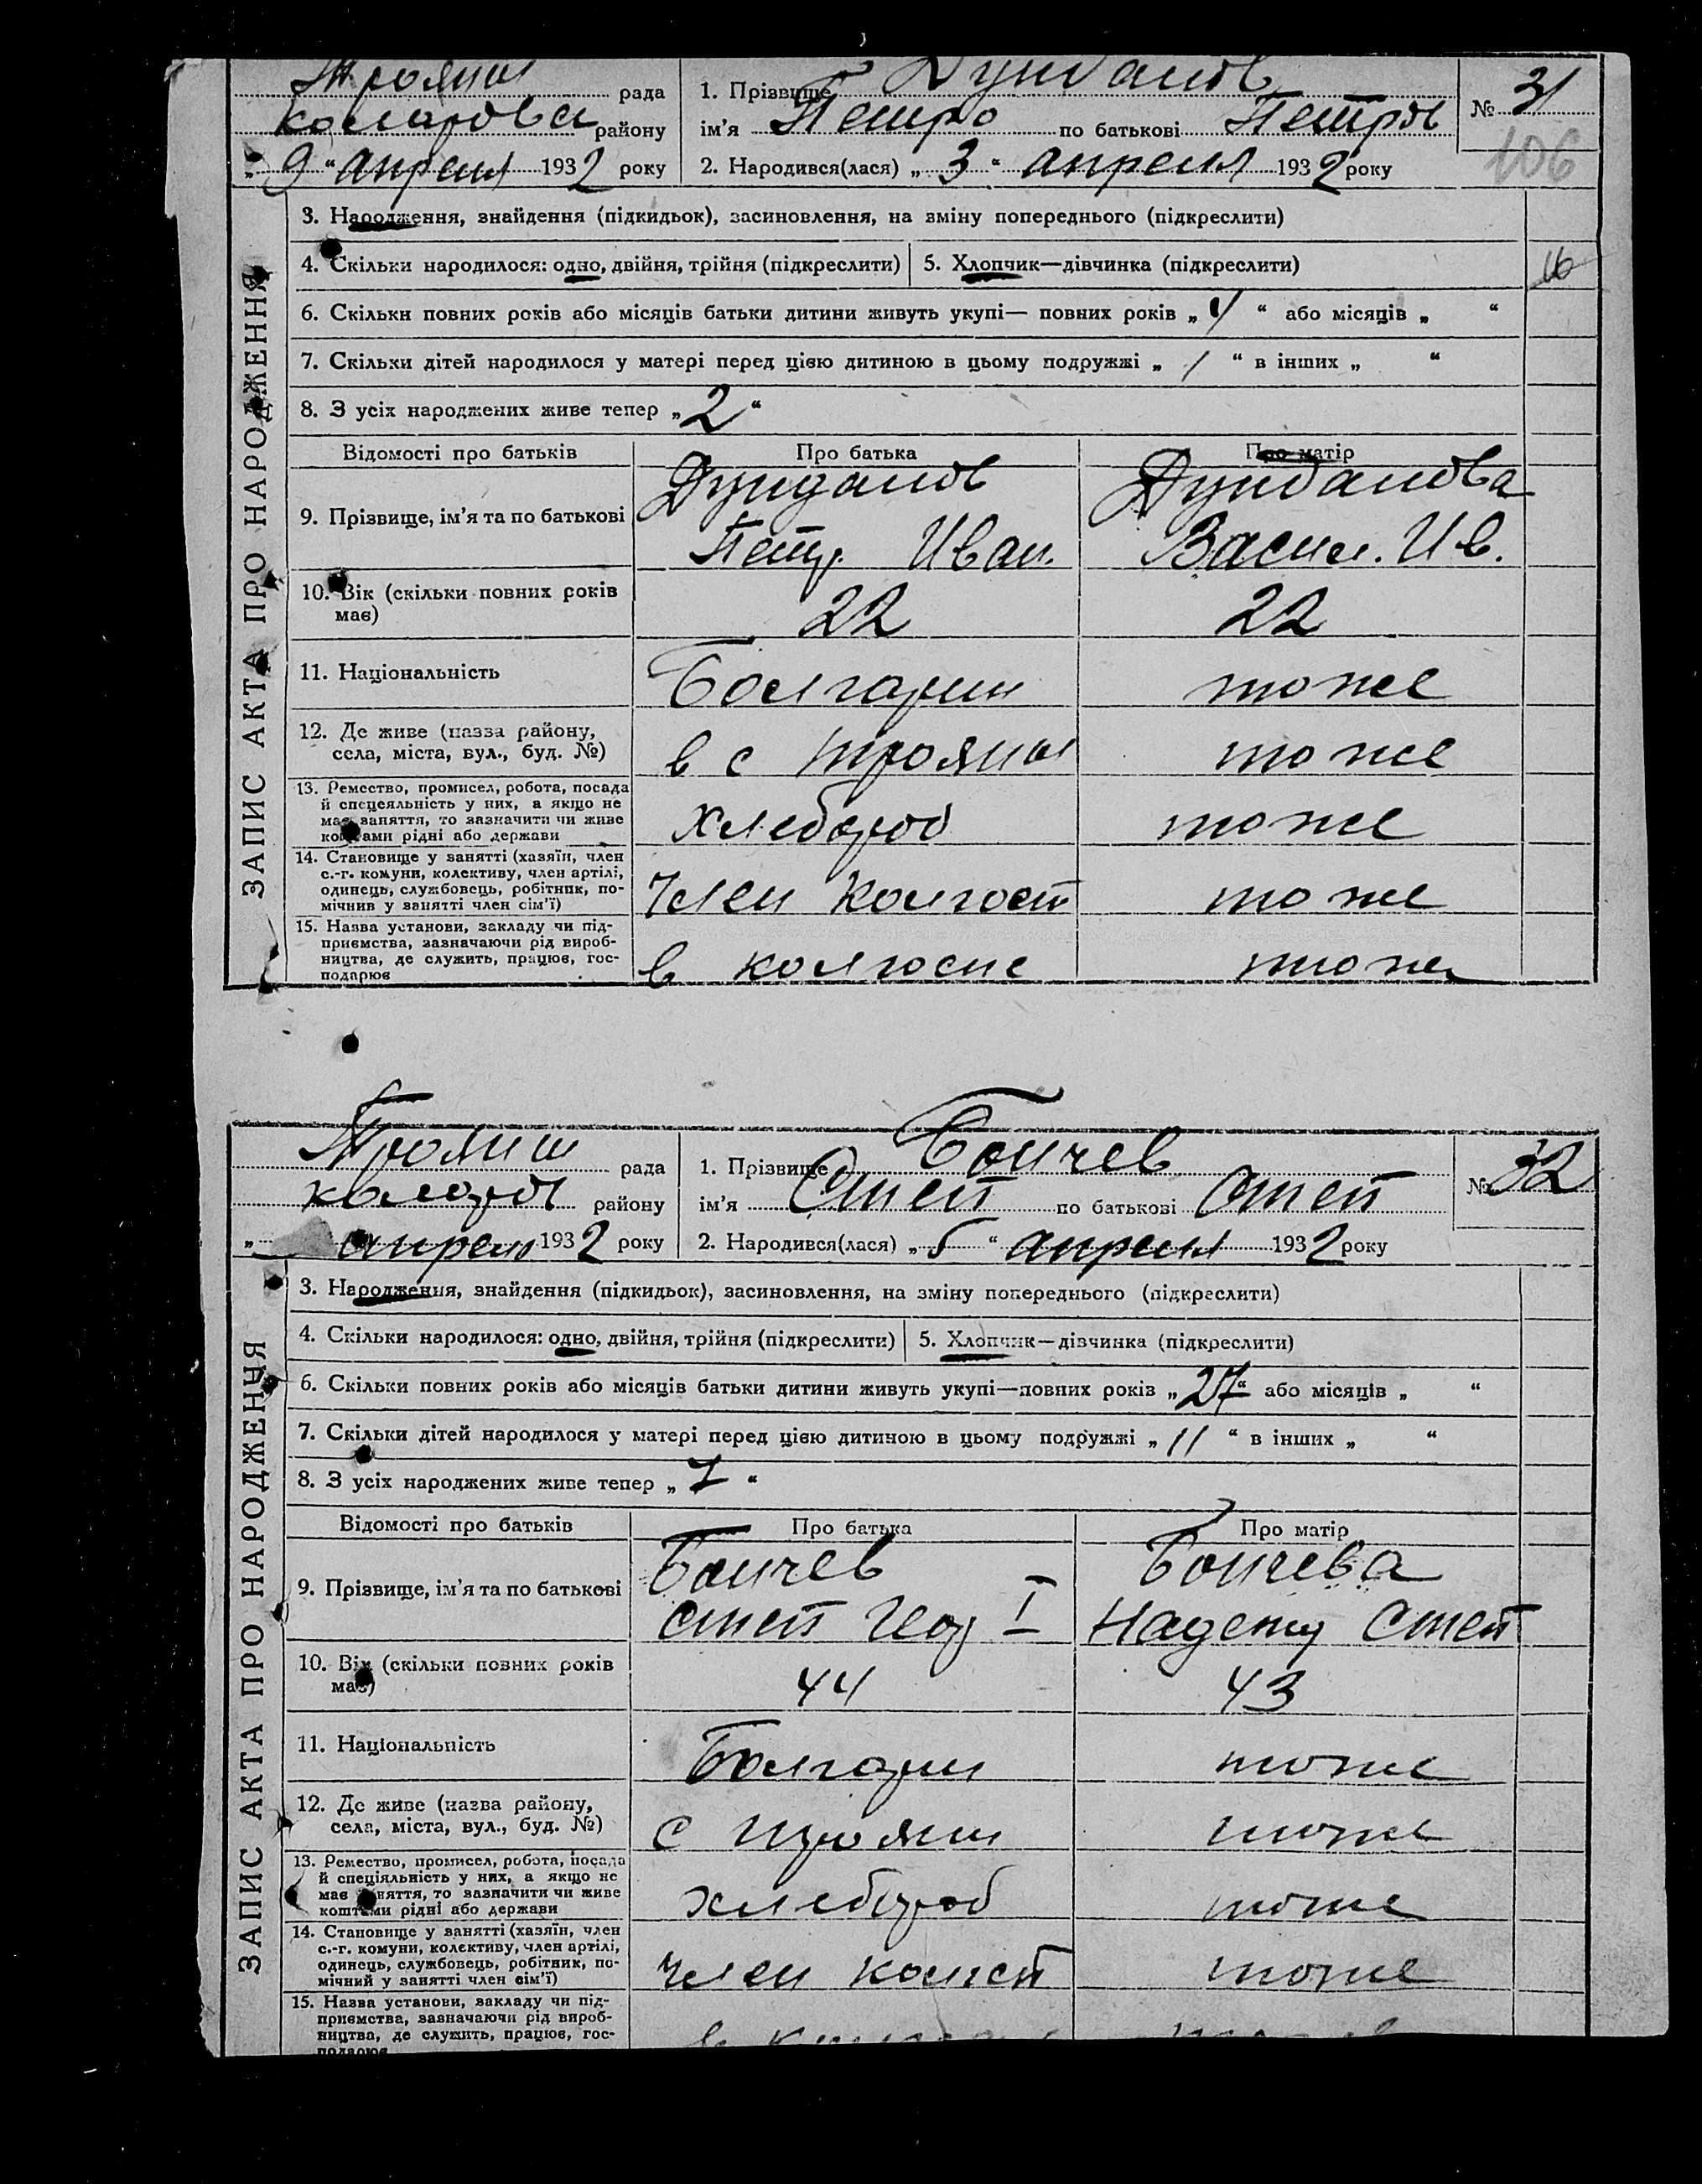 Трояны рада
Коларовск району
„ 9 “ апреля 1932 року
1. Прізвище Дундалов
ім'я Петро по батькові Петров
2. Народився(лася) „ 3 “ апреля 1932 року
№ 31
106
ЗАПИС АКТА ПРО НАРОДЖЕННЯ
3. Народження, знайдення (підкидьок), засиновлення, на зміну попереднього (підкреслити)
4. Скільки народилося: одно, двійня, трійня (підкреслити) 5. Хлопчик—дівчинка (підкреслити)
16
6. Скільки повних років або місяців батьки дитини живуть укупі— повних років „ 4 “ або місяців „ “
7. Скільки дітей народилося у матері перед цією дитиною в цьому подружжі „ 1 “ в інших „ “
8. З усіх народжених живе тепер „ 2 “
Відомості про батьків Про батька Про матір
9. Прізвище, ім'я та по батькові
Дундалов Дундалова
Петр. Иван. Васил. Ив.
10. Вік (скільки повних років
має)
22 22
11. Національність Болгарин тоже
12. Де живе (назва району,
села, міста, вул., буд. №)
в с Трояны тоже
13. Ремество, промисел, робота, посада
й спеціяльність у них, а якщо не
має заняття, то зазначити чи живе
коштами рідні або держави
хлебороб тоже
14. Становище у занятті (хазяїн, член
с.-г. комуни, колективу, член артілі,
одинець, службовець, робітник, по-
мічник у занятті член сім'ї)
член колгосп тоже
15. Назва установи, закладу чи під-
приємства, зазначаючи рід вироб-
ництва, де служить, працює, гос-
подарює
в колгоспе тоже
Трояны рада
Коларов району
„ апреля 1932 року
1. Прізвище Бончев
ім'я Степ по батькові Степ
2. Народився(лася) „ 5 “ апреля 1932 року
№ 32
ЗАПИС АКТА ПРО НАРОДЖЕННЯ
3. Народження, знайдення (підкидьок), засиновлення, на зміну попереднього (підкреслити)
4. Скільки народилося: одно, двійня, трійня (підкреслити) 5. Хлопчик—дівчинка (підкреслити)
6. Скільки повних років або місяців батьки дитини живуть укупі—повних років „ 27 “ або місяців „ “
7. Скільки дітей народилося у матері перед цією дитиною в цьому подружжі „ 11 “ в інших „ “
8. З усіх народжених живе тепер „ 7 “
Відомості про батьків Про батька Про матір
9. Прізвище, ім'я та по батькові
Бончев Бончева
Степ Геор I Надежд Степ
10. Вік (скільки повних років
має)
44 43
11. Національність Болгарин тоже
12. Де живе (назва району,
села, міста, вул., буд. №)
с Трояны тоже
13. Ремество, промисел, робота, посада
й спеціяльність у них, а якщо не
має заняття, то зазначити чи живе
коштами рідні або держави
хлебороб тоже
14. Становище у занятті (хазяїн, член
с.-г. комуни, колективу, член артілі,
одинець, службовець, робітник, по-
мічний у занятті член сім'ї)
член колгосп тоже
15. Назва установи, закладу чи під-
приємства, зазначаючи рід вироб-
ництва, де служить, працює, гос-
подарює